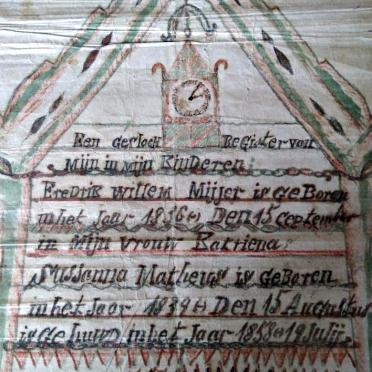 Een geslach Register van
Mijn in mijn Kinderen
Fredrik Willem Mijser is geBoren
in het Jaar 1836 en Den 15 September
in Mijn vrouw Katriena
Sussanna Matheus is geBoren
in het Jaar 1839 en Den 15 Augustus
is ge huwd in het Jaar 1858 en 19 Julij